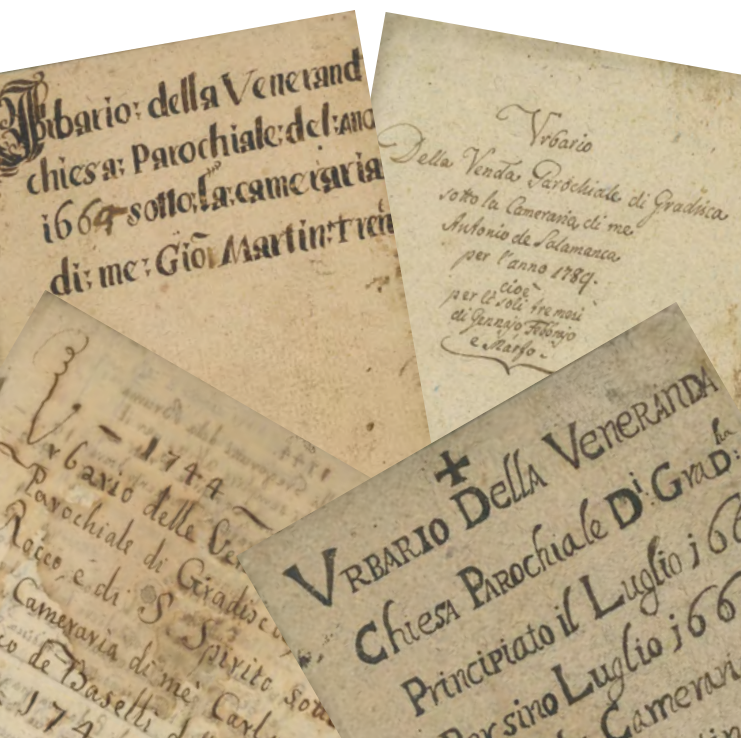 Urbario: della Venerand
chiesa: Parochiale: del: ano
1664 sotto: la: cameraria
di: me: Gio Martin: Tren
Vrbario
Della Venda Parochiale di Gradisca
sotto la Cameraria, di me
Antonio de Salamanca
per l'anno 1789.
cioè
per li soli tre mesi
di Gennajo, Febbrajo
e Marzo.
1744
Vrbario delle Ven
Parochiale di Gradisca,
Rocco, e di S. Spirito sotto
Cameraria di me Carl
co de Baselli
174
✝
VRBARIO Della VENERANDA
Chiesa PAROchiale Di GraD:ha
Principiato il Luglio j66
Per sino Luglio j66
la Camerari